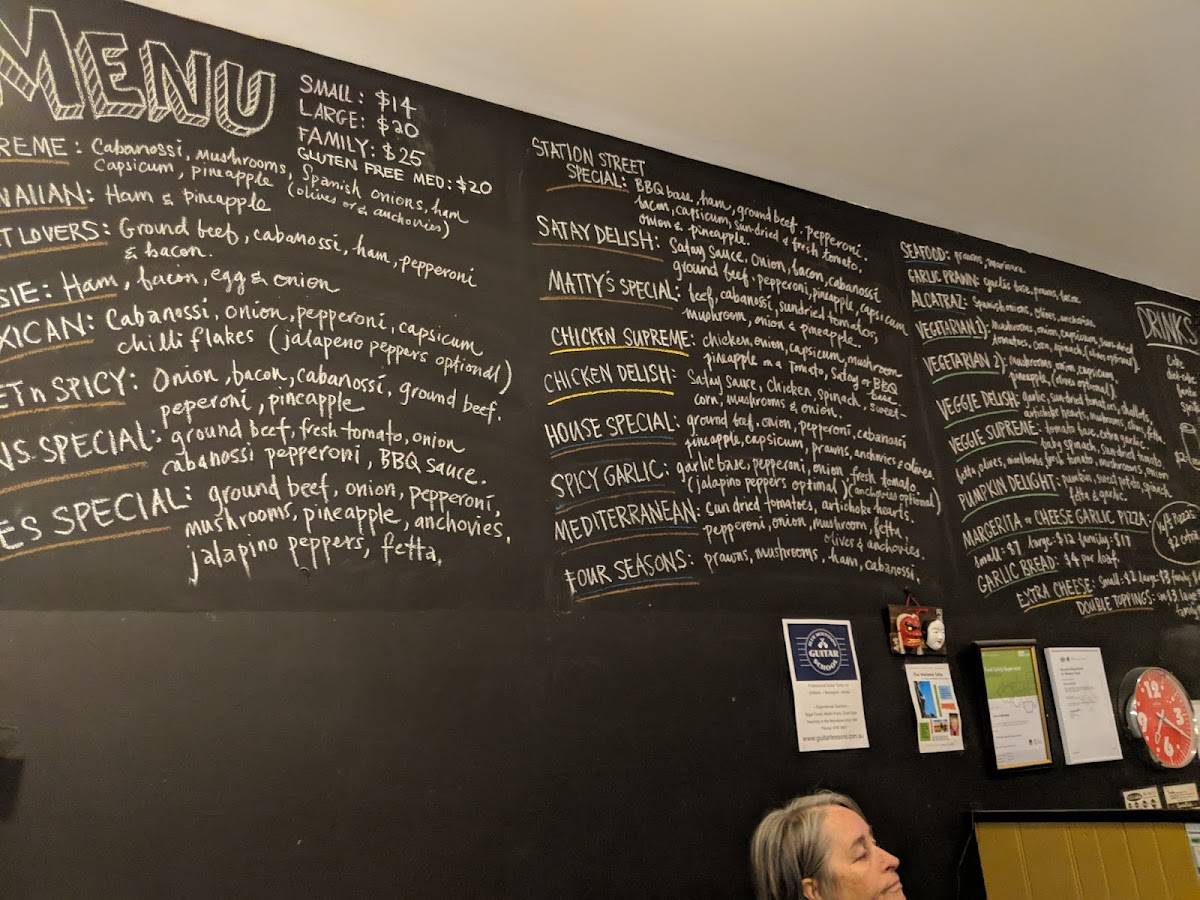 MENU
SMALL: $14
LARGE: $20
FAMILY: $25
GLUTEN FREE MED: $20
REME: Cabanossi, mushrooms, Spanish onions, ham
Capsicum, pineapple (olives or & anchovies)
AIIAN: Ham & pineapple
T LOVERS: Ground beef, cabanossi, ham, pepperoni
& bacon.
SIE: Ham, bacon, egg & onion
XICAN: Cabanossi, onion, pepperoni, capsicum
chilli flakes (jalapeno peppers optional)
ET n SPICY: Onion, bacon, cabanossi, ground beef.
peperoni, pineapple
NS SPECIAL: ground beef, fresh tomato, onion
cabanossi pepperoni, BBQ sauce.
ES SPECIAL: ground beef, onion, pepperoni,
mushrooms, pineapple, anchovies,
jalapino peppers, fetta,
STATION STREET
SPECIAL: BBQ base, ham, ground beef, pepperoni
bacon, capsicum, sun-dried & fresh tomato,
onion & pineapple.
SATAY DELISH: Satay sauce, onion, bacon, cabanossi
ground beef, pepperoni, pineapple, capsicum
MATTY'S SPECIAL: beef, cabanossi, sundried tomatoes,
mushroom, onion & pineapple.
CHICKEN SUPREME: chicken, onion, capsicum, mushroom
pineapple on a Tomato, Satay or BBQ
base
CHICKEN DELISH: Satay Sauce, chicken, spinach, sweet-
corn, mushrooms & onion.
HOUSE SPECIAL: ground beef, onion, pepperoni, cabanossi
pineapple, capsicum, prawns, anchovies & olives
SPICY GARLIC: garlic base, pepperoni, onion, fresh tomato.
(jalapino peppers optimal) (anchovies optional)
MEDITERRANEAN: Sun dried tomatoes, artichoke hearts.
pepperoni, onion, mushroom, fetta,
olives & anchovies.
FOUR SEASONS: prawns, mushrooms, ham, cabanossi.
SEAFOOD: prawns, marinara.
GARLIC PRAWN: garlic base, prawns, bacon.
ALCATRAZ: Spanish onions, olives, anchovies
VEGETARIAN 1): mushrooms, onion, capsicum, sun-dried
tomatoes, corn, spinach (olives optional)
VEGETARIAN 2): mushrooms onion, capsicum
pineapple, (olives optional)
VEGGIE DELISH: garlic, sundried tomatoes, shallots,
artichoke hearts, mushrooms, olives, fetta
VEGGIE SUPREME: tomato base, extra garlic,
baby spinach, sundried tomato
fetta, olives, fresh tomato, mushrooms, onion
PUMPKIN DELIGHT: pumpkin, sweet potato, spinach,
fetta & garlic.
MARGERITA or CHEESE GARLIC PIZZA:
small: $9 large: $12 family: $18
GARLIC BREAD: $4 per loaf.
EXTRA CHEESE: Small: $2 large: $3 family
DOUBLE TOPPINGS: sm $3, large
DRINKS
Coke
1/2 & 1/2 PIZZAS
$2 extra
GUITAR
SCHOOL
www.guitarlessons.com.au
12
3
6
9